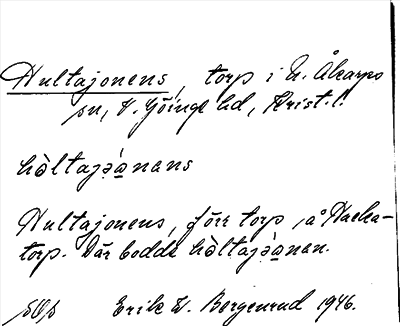 Hultajonens, torp i N. Åkarps
sn, V. Göinge hd, Krist. l.
hòltajə̀ạnans
Hultajonens, förr torp på Hacka-
torp. Där bodde hòltajə̀ạnan.
Erik W. Bergenrud 1946.